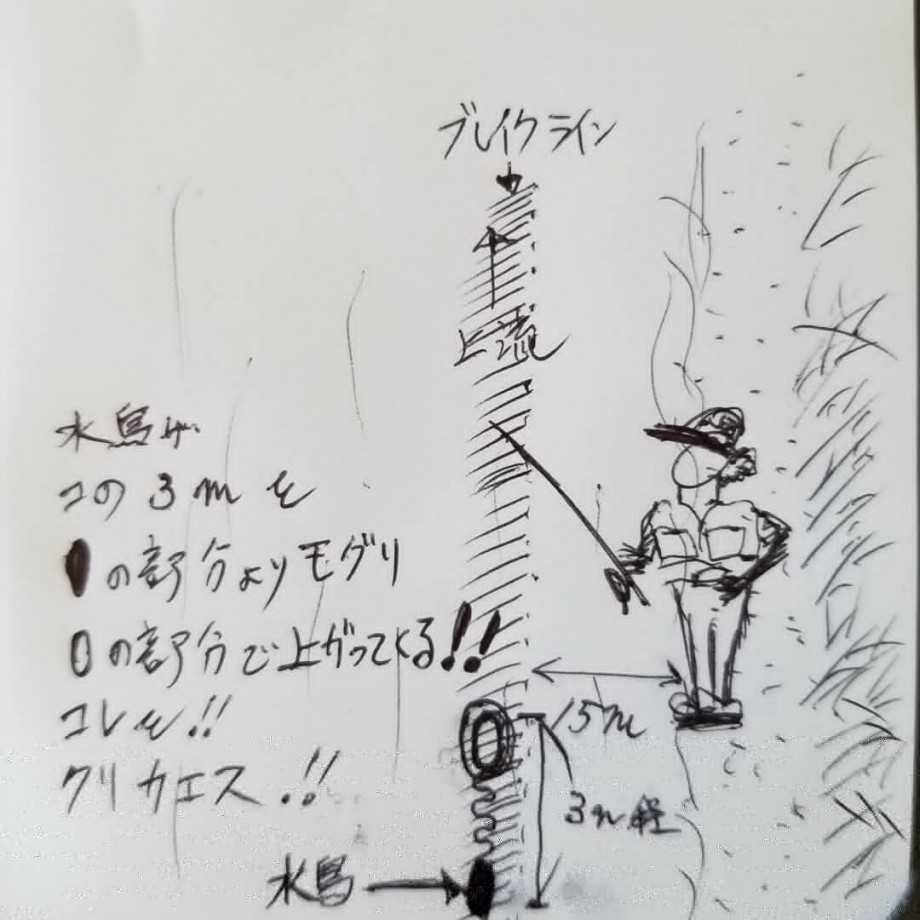 ブレイクライン
上流
水鳥が
コの3mを
の部分よりモグリ
0の部分で上がってくる!!
コレを!!
クリカエス!!
15m
3m
水鳥